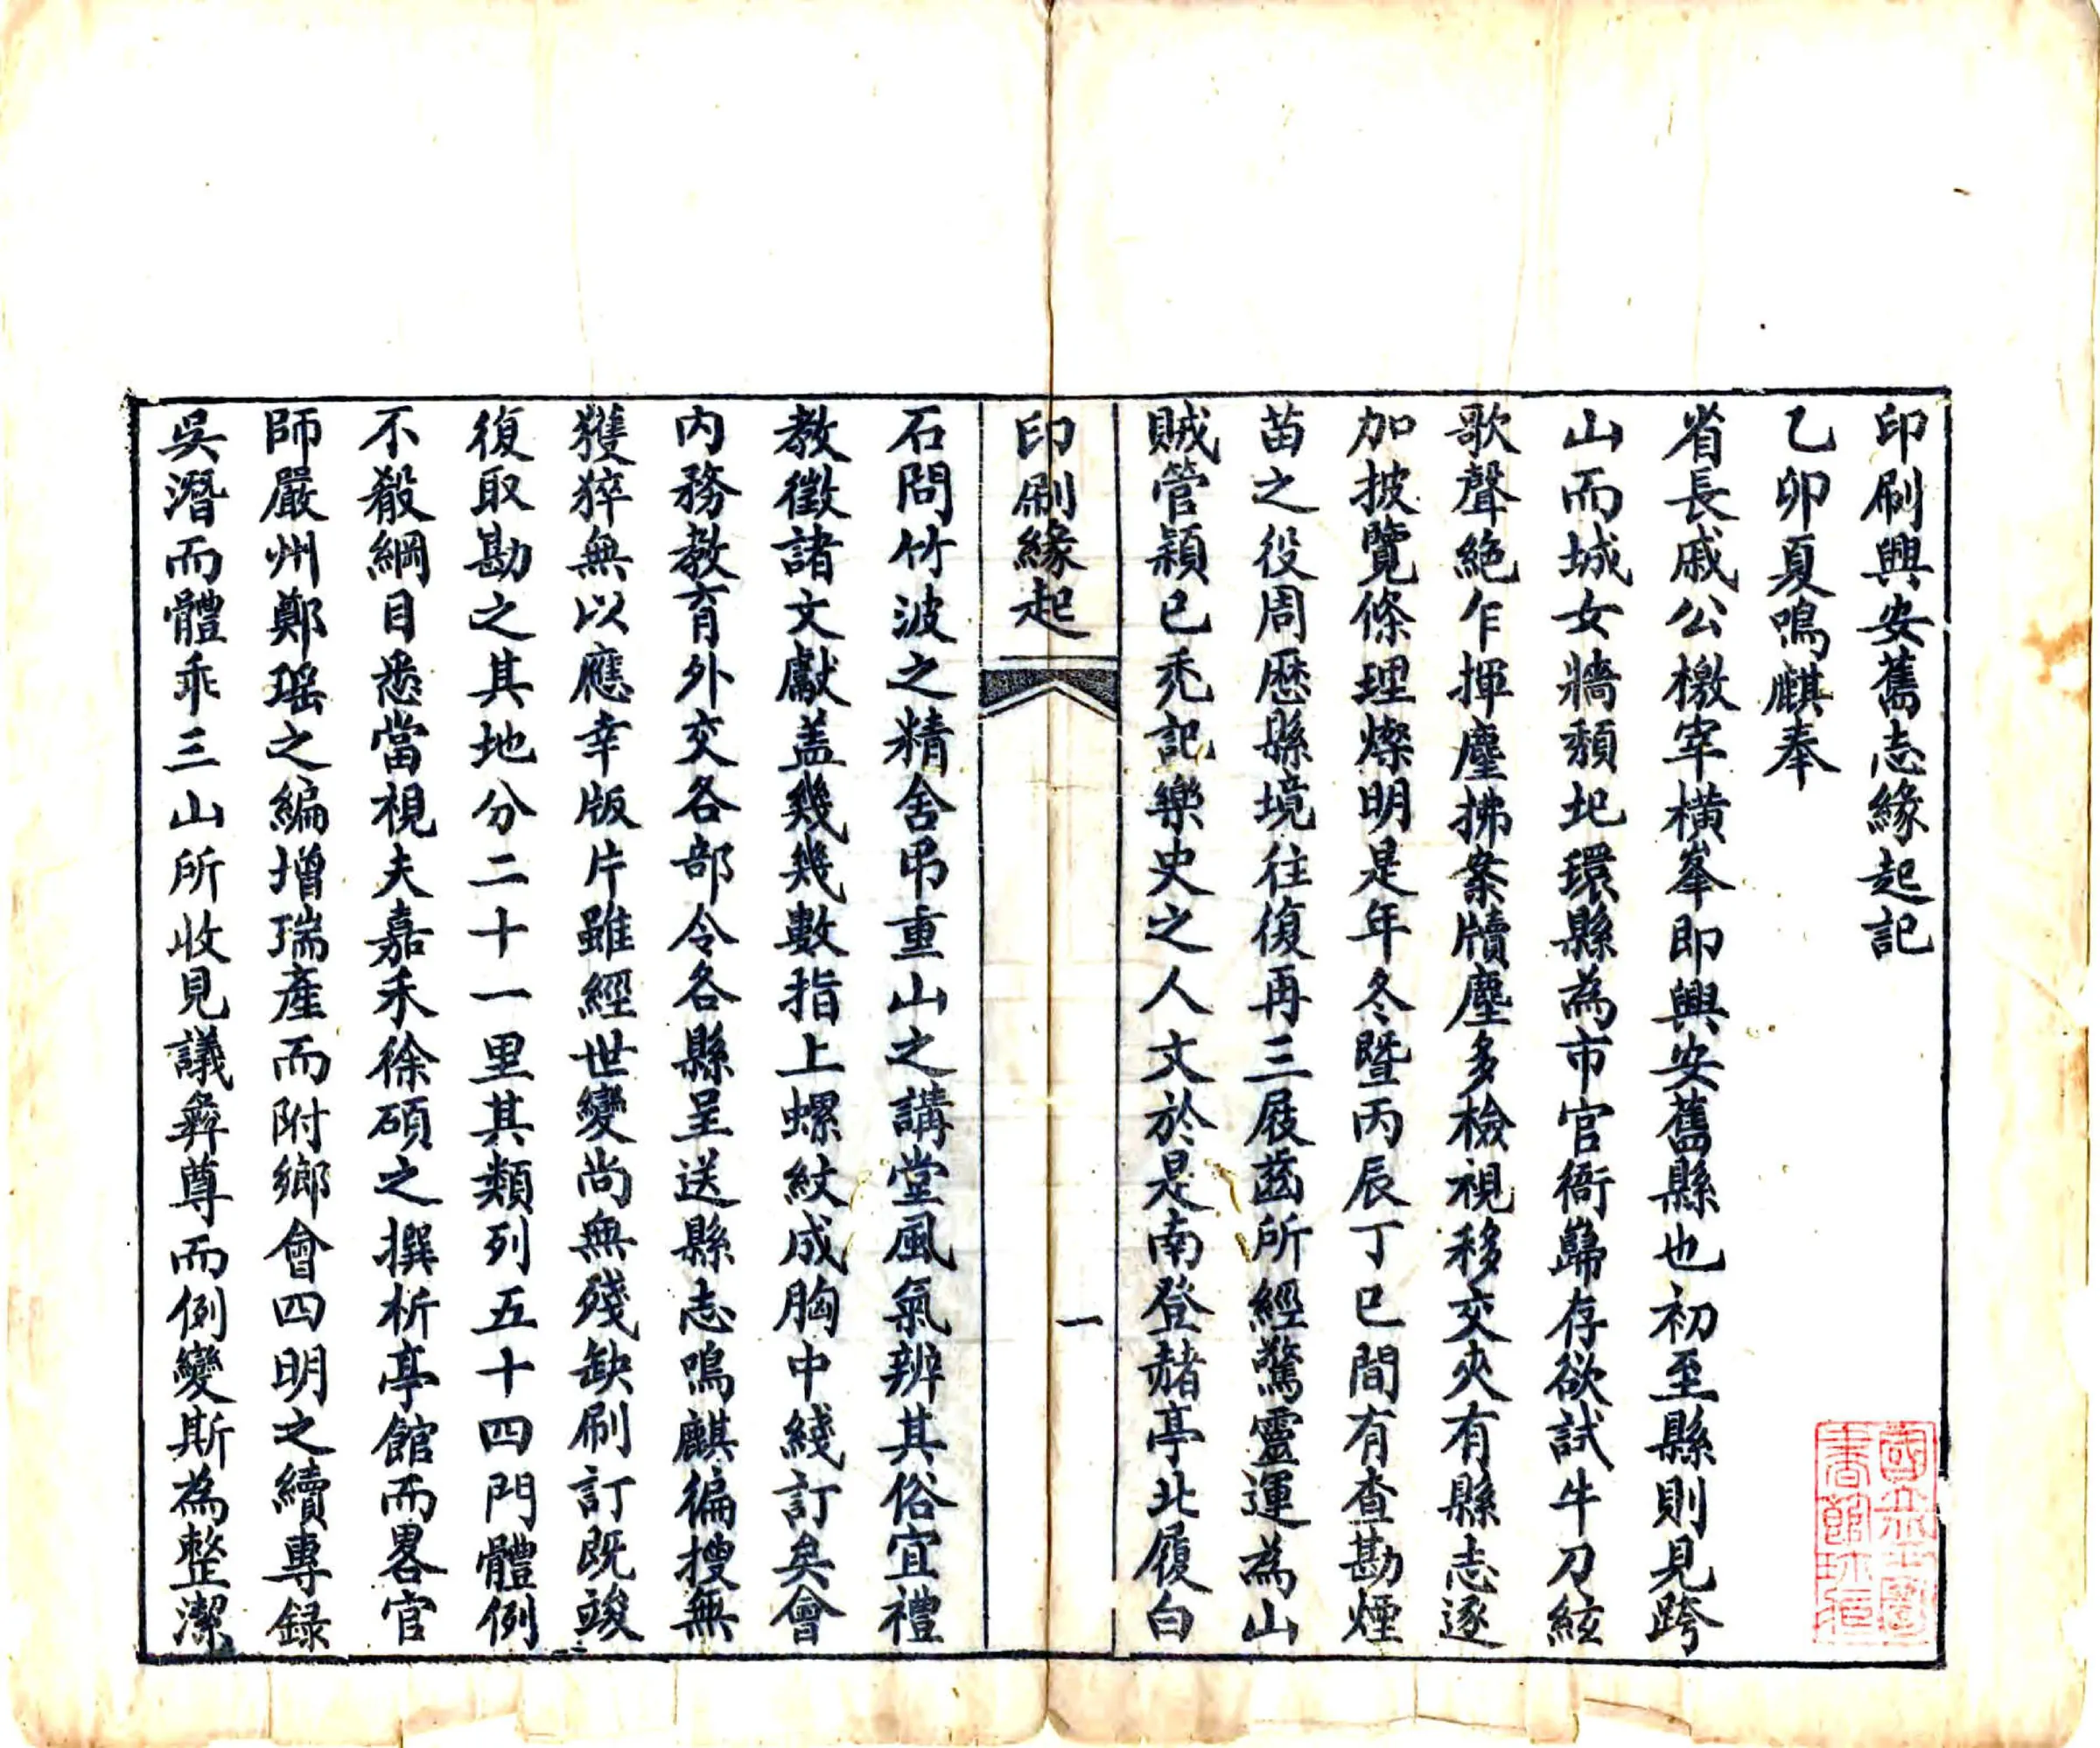 印刷興安舊志緣起記
乙卯夏鳴麒奉
省長戚公檄宰橫峯即興安舊縣也初至縣則見跨
山而城女牆頽圮環縣為市官衙巋存欲試牛刀絃
歌聲絶乍揮塵拂案牘塵多檢視移交夾有縣志逐
加披覽條理燦明是年冬暨丙辰丁巳間有查勘煙
苗之役周歷縣境往復再三屐齒所經驚靈運為山
賊管穎已禿記樂史之人文於是南登赭亭北履白
印刷緣起
一
石問竹波之精舍弔重山之講堂風氣辨其俗宜禮
教徵諸文獻盖幾幾數指上螺紋成胸中綫訂矣會
内務教育外交各部令各縣呈送縣志鳴麒徧搜無
獲猝無以應幸版片雖經世變尚無殘缺刷訂既竣
復取勘之其地分二十一里其類列五十四門體例
不殽綱目悉當視夫嘉禾徐碩之撰析亭館而畧官
師嚴州鄭瑶之編增瑞產而附鄉會四明之續專録
吳潛而體乖三山所收見議彜尊而例變斯為整潔